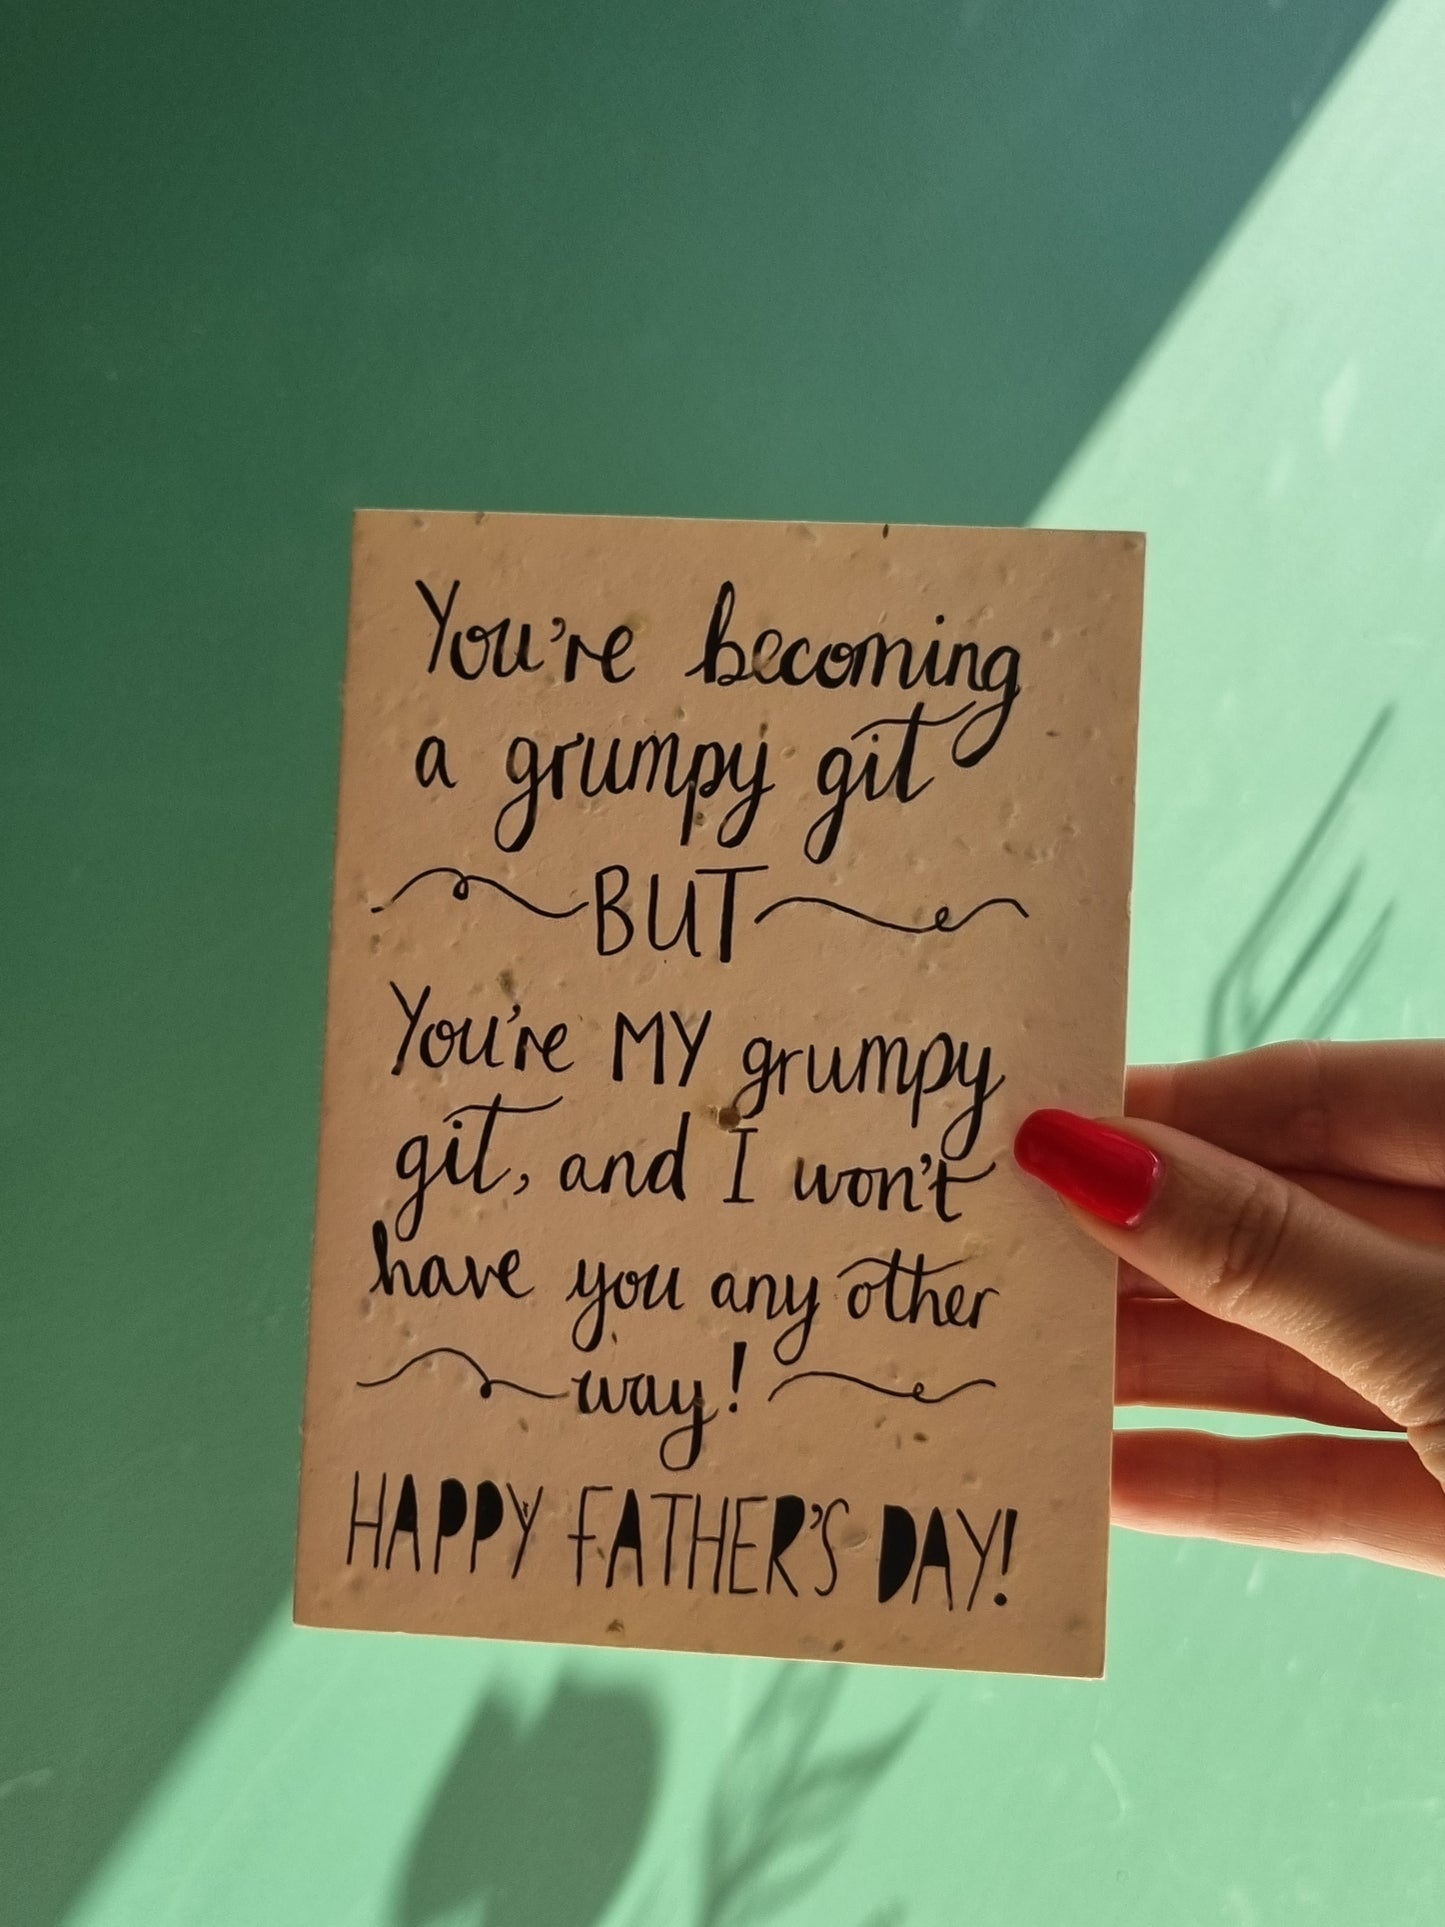 You're becoming
a grumpy git
BUT
You're MY grumpy
git, and I won't
have you any other
way!
HAPPY FATHER'S DAY!